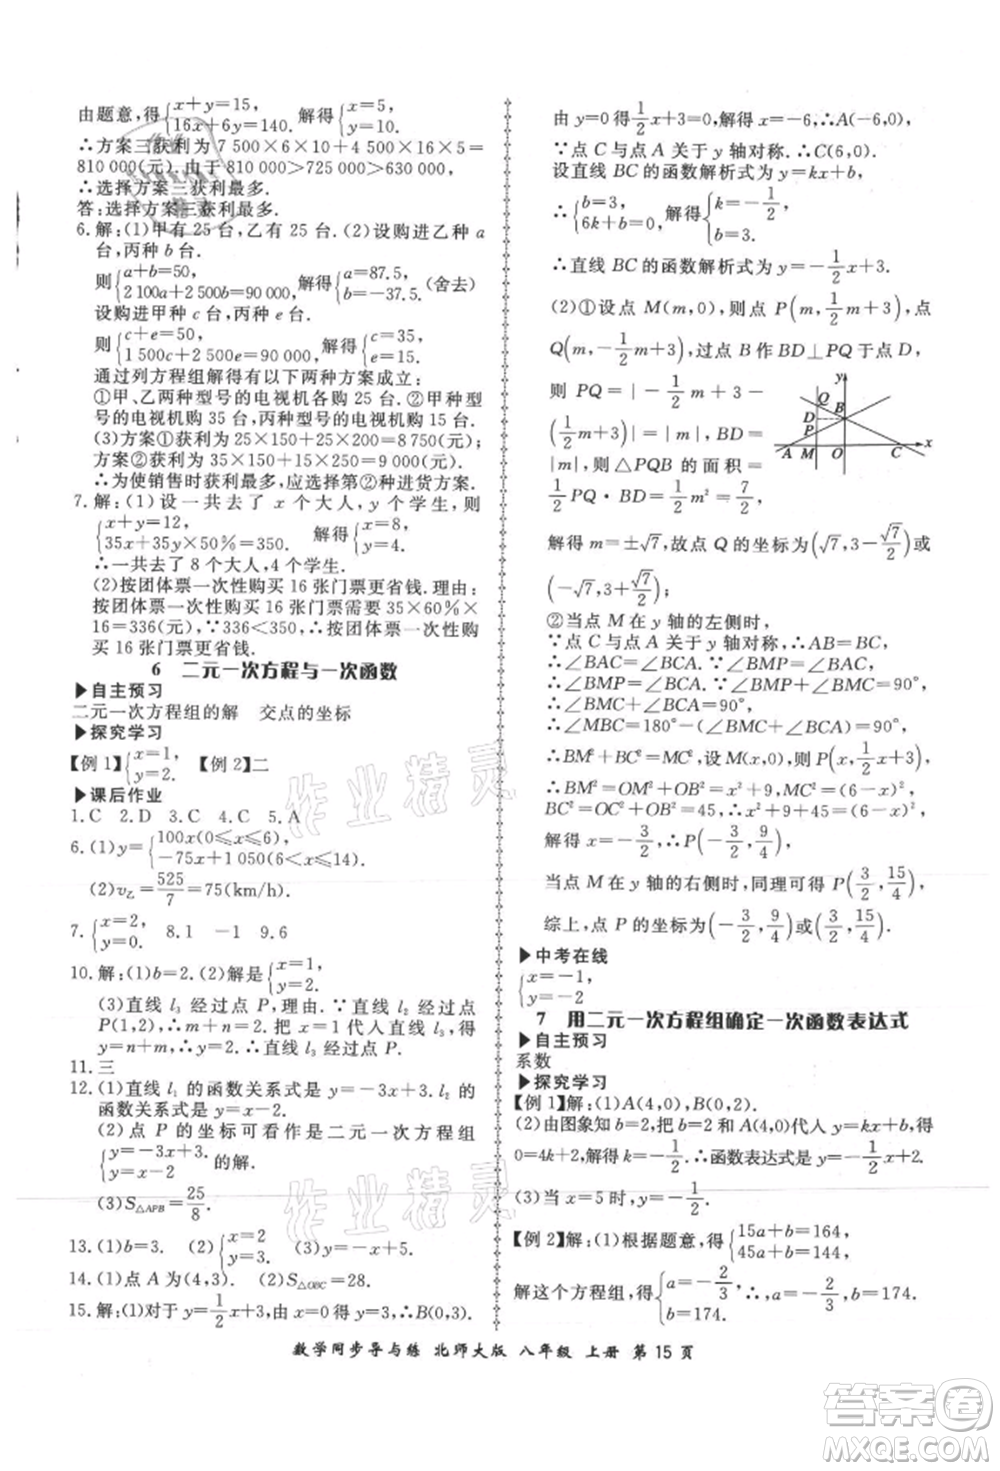 由题意,得{x+y=15, 16x+6y=140. 解得{x=5, y=10.
∴方案三获利为 7 500×6×10+4 500×16×5=
810 000(元).由于 810 000>725 000>630 000,
∴选择方案三获利最多.
答:选择方案三获利最多.
6.解:(1)甲有 25 台,乙有 25 台.(2)设购进乙种 a
台,丙种 b 台.
则{a+b=50, 2 100a+2 500b=90 000, 解得{a=87.5, b=-37.5. (舍去)
设购进甲种 c 台,丙种 e 台.
则{c+e=50, 1 500c+2 500e=90 000, 解得{c=35, e=15.
通过列方程组解得有以下两种方案成立:
①甲、乙两种型号的电视机各购 25 台.②甲种型
号的电视机购 35 台,丙种型号的电视机购 15 台.
(3)方案①获利为 25×150+25×200=8 750(元);
方案②获利为 35×150+15×250=9 000(元).
∴为使销售时获利最多,应选择第②种进货方案.
7.解:(1)设一共去了 x 个大人,y 个学生,则
{x+y=12, 35x+35y×50%=350. 解得{x=8, y=4.
∴一共去了 8 个大人,4 个学生.
(2)按团体票一次性购买 16 张门票更省钱.理由:
按团体票一次性购买 16 张门票需要 35×60%×
16=336(元),∵336<350,∴按团体票一次性购
买 16 张门票更省钱.
6 二元一次方程与一次函数
▶自主预习
二元一次方程组的解 交点的坐标
▶探究学习
【例 1】{x=1, y=2. 【例 2】二
▶课后作业
1.C 2.D 3.C 4.C 5.A
6.(1)y={100x(0≤x≤6), -75x+1 050(6≤x≤14).
(2)v乙=525/7=75(km/h).
7.{x=2, y=0. 8.1 -1 9.6
10.解:(1)b=2.(2)解得{x=1, y=2.
(3)直线 l₃ 经过点 P,理由.∵直线 l₂ 经过点
P(1,2),∴m+n=2.把 x=1 代人直线 l₃ 得
y=n+m=2,∴直线 l₃ 经过点 P.
11.三
12.(1)直线 l₁ 的函数关系式是 y=-3x+3.直线 l₂ 的
函数关系式是 y=x-2.
(2)点 P 的坐标可看作是二元一次方程组
{y=-3x+3, y=x-2 的解.
(3)S△APB=25/8.
13.(1)b=3. (2){x=2, y=3.
14.(1)点 A 为(4,3). (2)S△OBC=28.
15.解:(1)对于 y=1/2x+3,由 x=0 得 y=3,∴B(0,3).
由 y=0 得 1/2x+3=0,解得 x=-6,∴A(-6,0).
∵点 C 与点 A 关于 y 轴对称.∴C(6,0).
设直线 BC 的函数解析式为 y=kx+b,
∴{b=3, 6k+b=0, 解得{k=-1/2, b=3.
∴直线 BC 的函数解析式为 y=-1/2x+3.
(2)①设点 M(m,0),则点 P(m,1/2m+3),点
Q(m,-1/2m+3),过点 B 作 BD⊥PQ 于点 D,
则 PQ=|-1/2m+3-
(1/2m+3)|=|m|,BD=
|m|,则△PQB 的面积=
1/2PQ·BD=1/2m²=7/2,
y
Q
D
B
P
A
M
O
C
x
解得 m=±√7,故点 Q 的坐标为(√7,3-√7/2)或
(-√7,3+√7/2);
②当点 M 在 y 轴的左侧时,
∵点 C 与点 A 关于 y 轴对称,∴AB=BC,
∴∠BAC=∠BCA,
∵∠BMP=∠BAC,∴∠BMP=∠BCA,
∵∠BMP+∠BMC=90°,∴∠BMC+∠BCA=90°,
∴∠MBC=180°-(∠BMC+∠BCA)=90°,
∴BM²+BC²=MC²,设 M(x,0),则 P(x,1/2x+3),
∴BM²=OM²+OB²=x²+9,MC²=(6-x)²,
BC²=OC²+OB²=45,∴x²+9+45=(6-x)²,
解得 x=-3/2,∴P(-3/2,9/4),
当点 M 在 y 轴的右侧时,同理可得 P(3/2,15/4),
综上,点 P 的坐标为(-3/2,9/4)或(3/2,15/4).
▶中考在线
{x=-1, y=-2
7 用二元一次方程组确定一次函数表达式
▶自主预习
系数
▶探究学习
【例 1】解:(1)A(4,0),B(0,2).
(2)由图象知 b=2,把 b=2 和 A(4,0)代人 y=kx+b,得
0=4k+2,解得 k=-1/2,∴函数表达式是 y=-1/2x+2.
(3)当 x=5时,y=-1/2×5+2=-1/2.
【例 2】解:(1)根据题意,得{15a+b=164, 45a+b=144,
解这个方程组,得{a=-2/3, b=174. 即{a=-2/3, b=174.
数学同步导与练 北师大版 八年级 上册 第 15 页
作业精灵
作业精灵
答案圈
MXQE.COM